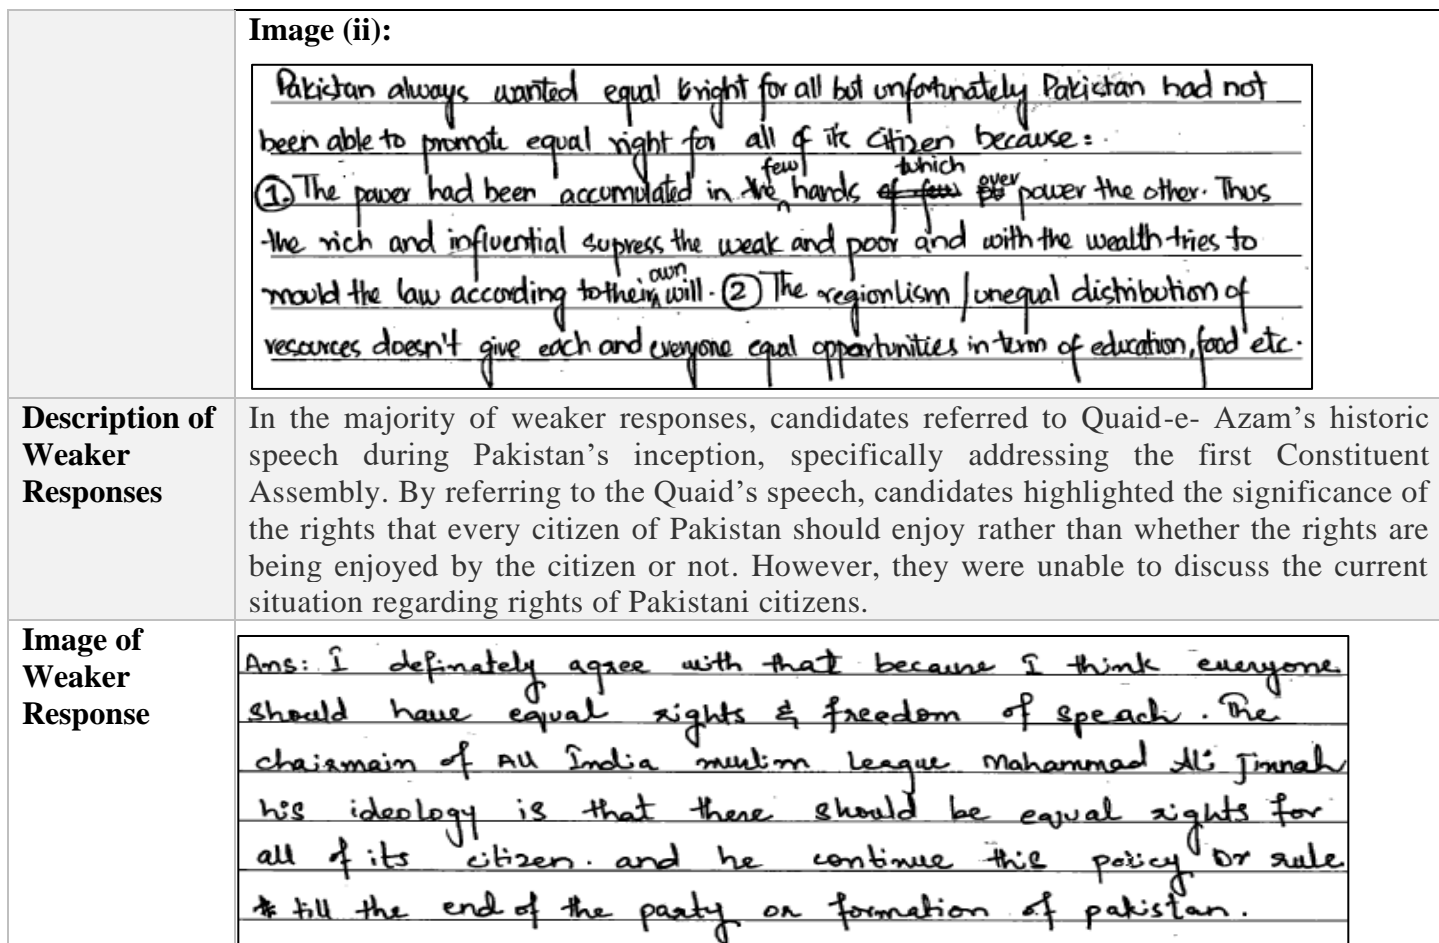 Image (ii):
Pakistan always wanted equal bright for all but unfortunately Pakistan had not
been able to promote equal right for all of its citizen because:
1. The power had been accumulated in the few hands of few which over power the other. Thus
the rich and influential supress the weak and poor and with the wealth tries to
mould the law according to their own will. 2 The regionlism / unequal distribution of
resources doesn't give each and everyone equal opportunities in term of education, food etc.
Description of
Weaker
Responses
In the majority of weaker responses, candidates referred to Quaid-e- Azam's historic
speech during Pakistan's inception, specifically addressing the first Constituent
Assembly. By referring to the Quaid's speech, candidates highlighted the significance of
the rights that every citizen of Pakistan should enjoy rather than whether the rights are
being enjoyed by the citizen or not. However, they were unable to discuss the current
situation regarding rights of Pakistani citizens.
Image of
Weaker
Response
Ans: I definately agree with that because I think everyone
should have equal rights & freedom of speach. The
chairmain of All India muslim League Mahammad Ali Jinnah
his ideology is that there should be equal rights for
all of its citizen. and he continue this policy or rule
till the end of the party or formation of pakistan.